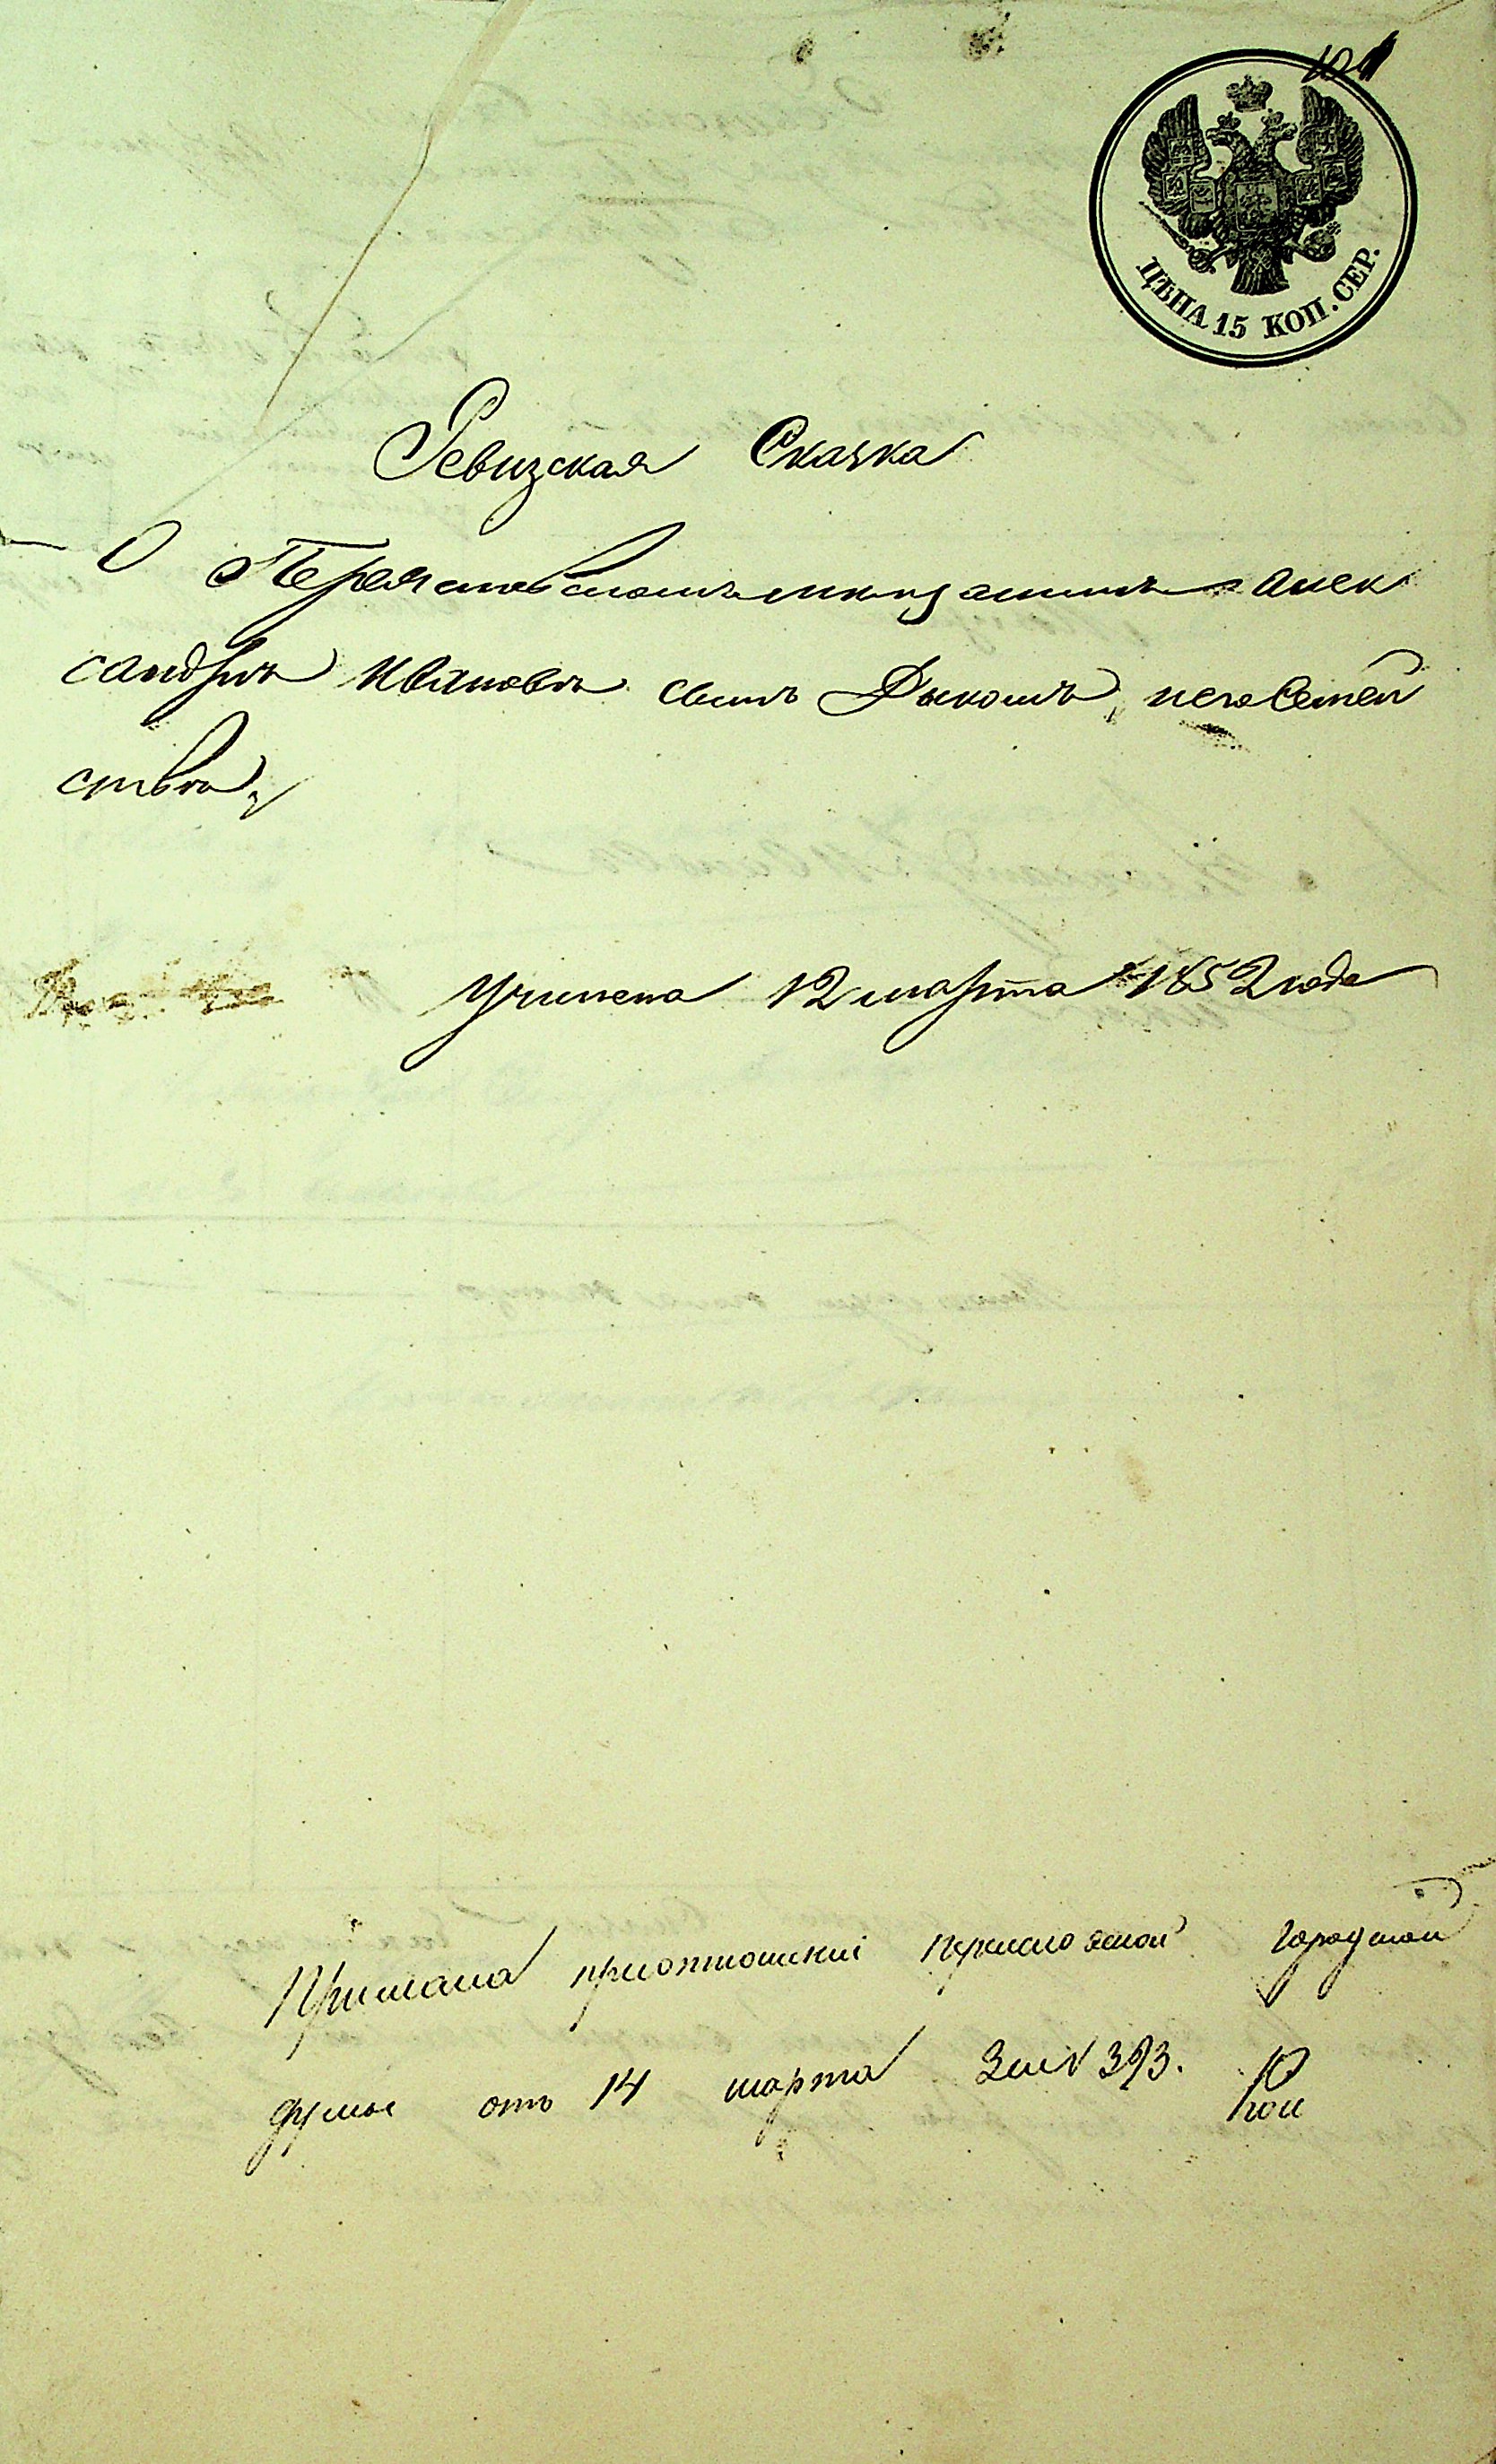 101
ЦѢНА 15 КОП. СЕР.
Ревизская Сказка
О Переяславскомъ мещанинѣ Алек
сандрѣ Ивановѣ сынѣ Дыкомъ, иего Семей
ствѣ,
Учинена 12 марта 1852 года
Прислана приотношении переяславской городской
думы отъ 14 марта За № 393.